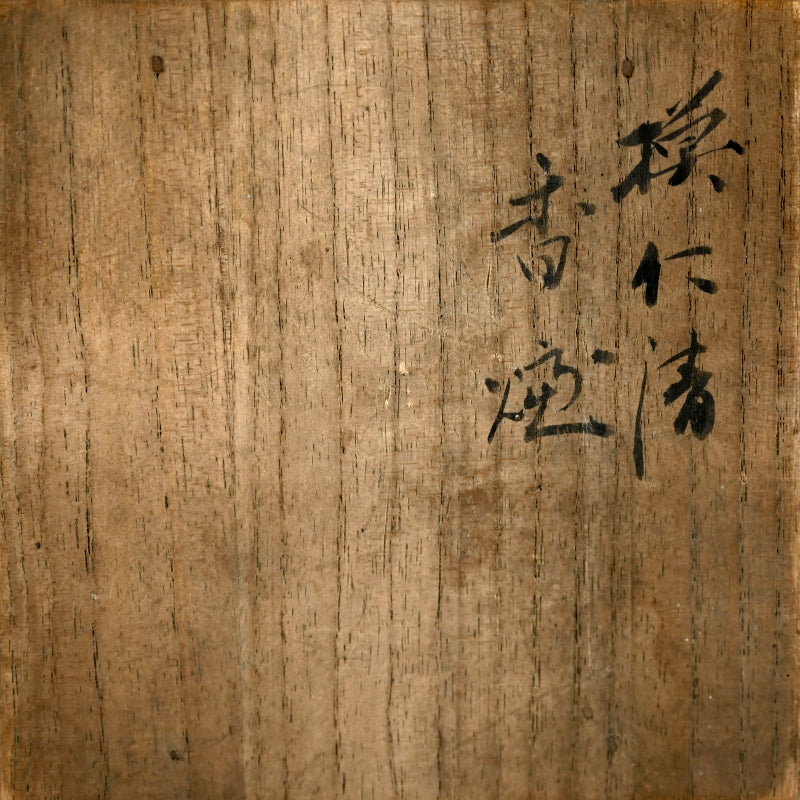 模仁清
香爐